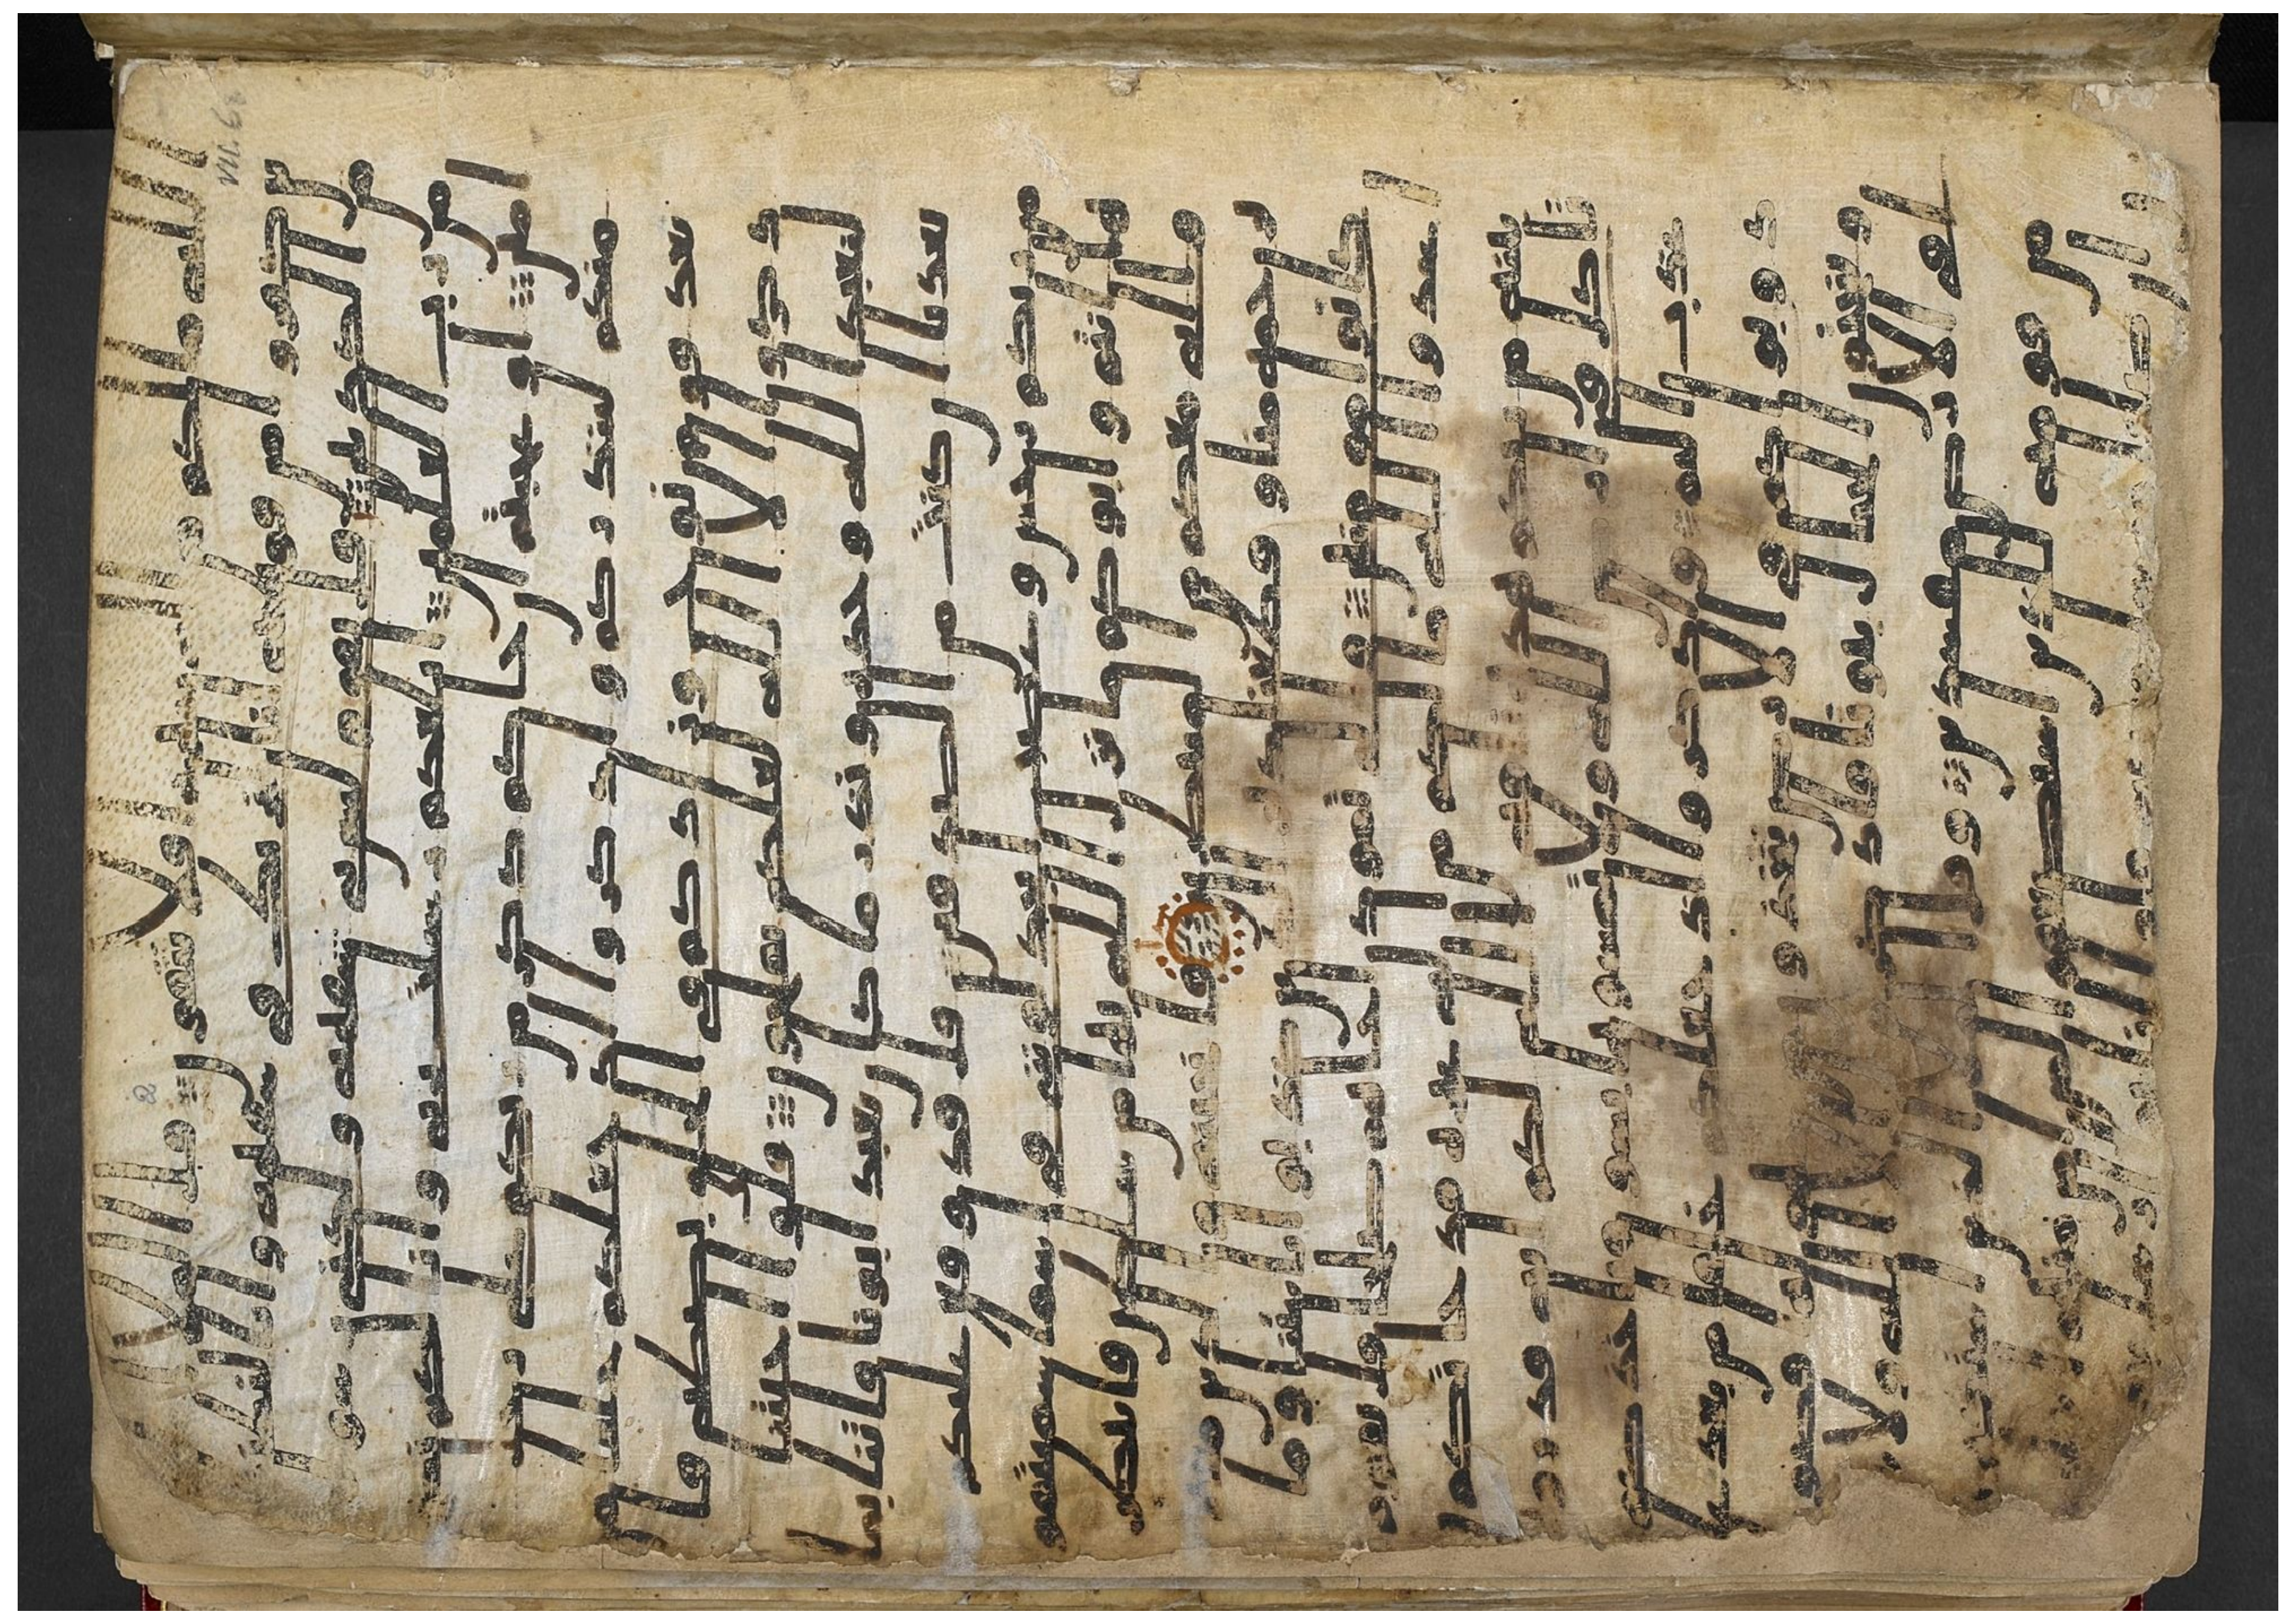 الله ما لكم من اله غيره افلا تتقون قل الملا ا
لذين كفروا من قومه انا لنريك في سفهه وانا لنظنك
من الكذبين قل يقوم ليس بي سفهه ولكني رسو
ل من رب العلمين ابلغكم رسلت ربي وانا لكم نصح
امين او عجبتم ان جاكم ذكر من ربكم على ر
جل منكم لينذركم واذكروا اذ جعلكم خلفا من
بعد قوم نوح وزادكم في الخلق بصطه فا
ذكروا الا الله لعلكم تفلحون قلوا اجيتنا
لنعبد الله وحده ونذر ما كان يعبد اباونا فاتنا بما
تعدنا ان كنت من الصدقين قل قد وقع عليكم
من ربكم رجس وغضب اتجدلونني في اسما سميتمو
ها انتم واباوكم ما نزل الله بها من سلطن فانتظروا
اني معكم من المنتظرين فانجينه والذين معه
برحمه منا وقطعنا دابر الذين كذبوا بايتنا وما
كانوا مومنين والى ثمود اخاهم صلحا قل يقوم
اعبدوا الله ما لكم من اله غيره قد جاتكم
بينه من ربكم هذه ناقه الله لكم ايه فذرو
ها تاكل في ارض الله ولا تمسوها بسو فياخذ
كم عذاب اليم واذكروا اذ جعلكم خلفا من بعد
عاد وبواكم في الارض تتخذون من سهولها قصورا
وتنحتون الجبال بيوتا فاذكروا الا الله ولا
تعثوا في الارض مفسدين قل الملا الذين استكبروا
من قومه للذين استضعفوا لمن امن منهم